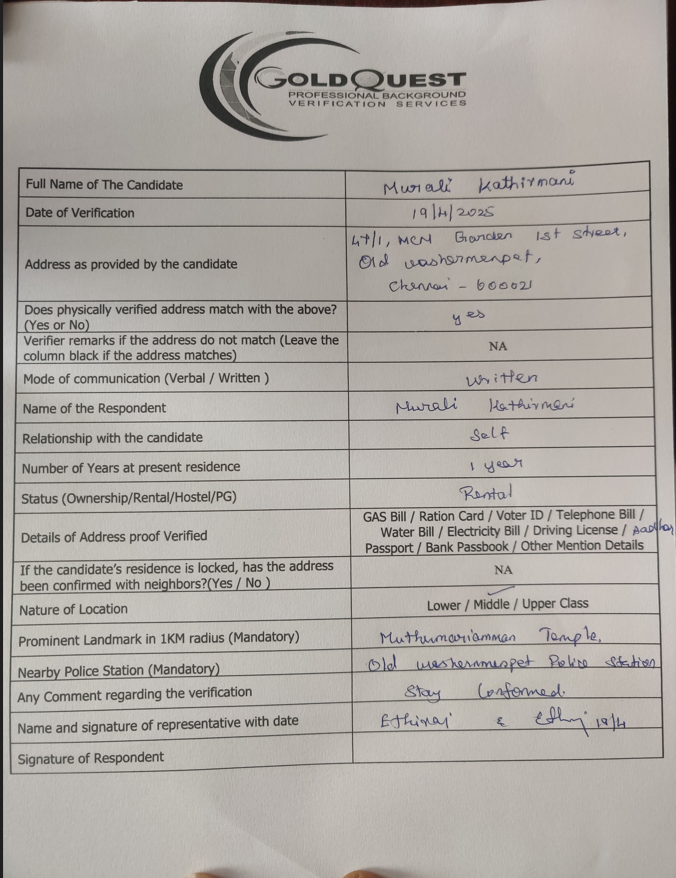 GOLDQUEST
PROFESSIONAL BACKGROUND
VERIFICATION SERVICES
Full Name of The Candidate Murali Kathirmani
Date of Verification 19/4/2025
Address as provided by the candidate 47/1, MCM Garden 1st street,
Old washermenpet,
Chennai - 600021
Does physically verified address match with the above? (Yes or No) yes
Verifier remarks if the address do not match (Leave the column black if the address matches) NA
Mode of communication (Verbal / Written ) written
Name of the Respondent Murali Kathirmani
Relationship with the candidate Self
Number of Years at present residence 1 year
Status (Ownership/Rental/Hostel/PG) Rental
Details of Address proof Verified GAS Bill / Ration Card / Voter ID / Telephone Bill /
Water Bill / Electricity Bill / Driving License / Aadhar
Passport / Bank Passbook / Other Mention Details
If the candidate's residence is locked, has the address been confirmed with neighbors?(Yes / No ) NA
Nature of Location Lower / Middle / Upper Class
Prominent Landmark in 1KM radius (Mandatory) Muthumariamman Temple,
Nearby Police Station (Mandatory) Old washermenpet Police Station
Any Comment regarding the verification Stay Conformed.
Name and signature of representative with date Ethiraj &
Signature of Respondent